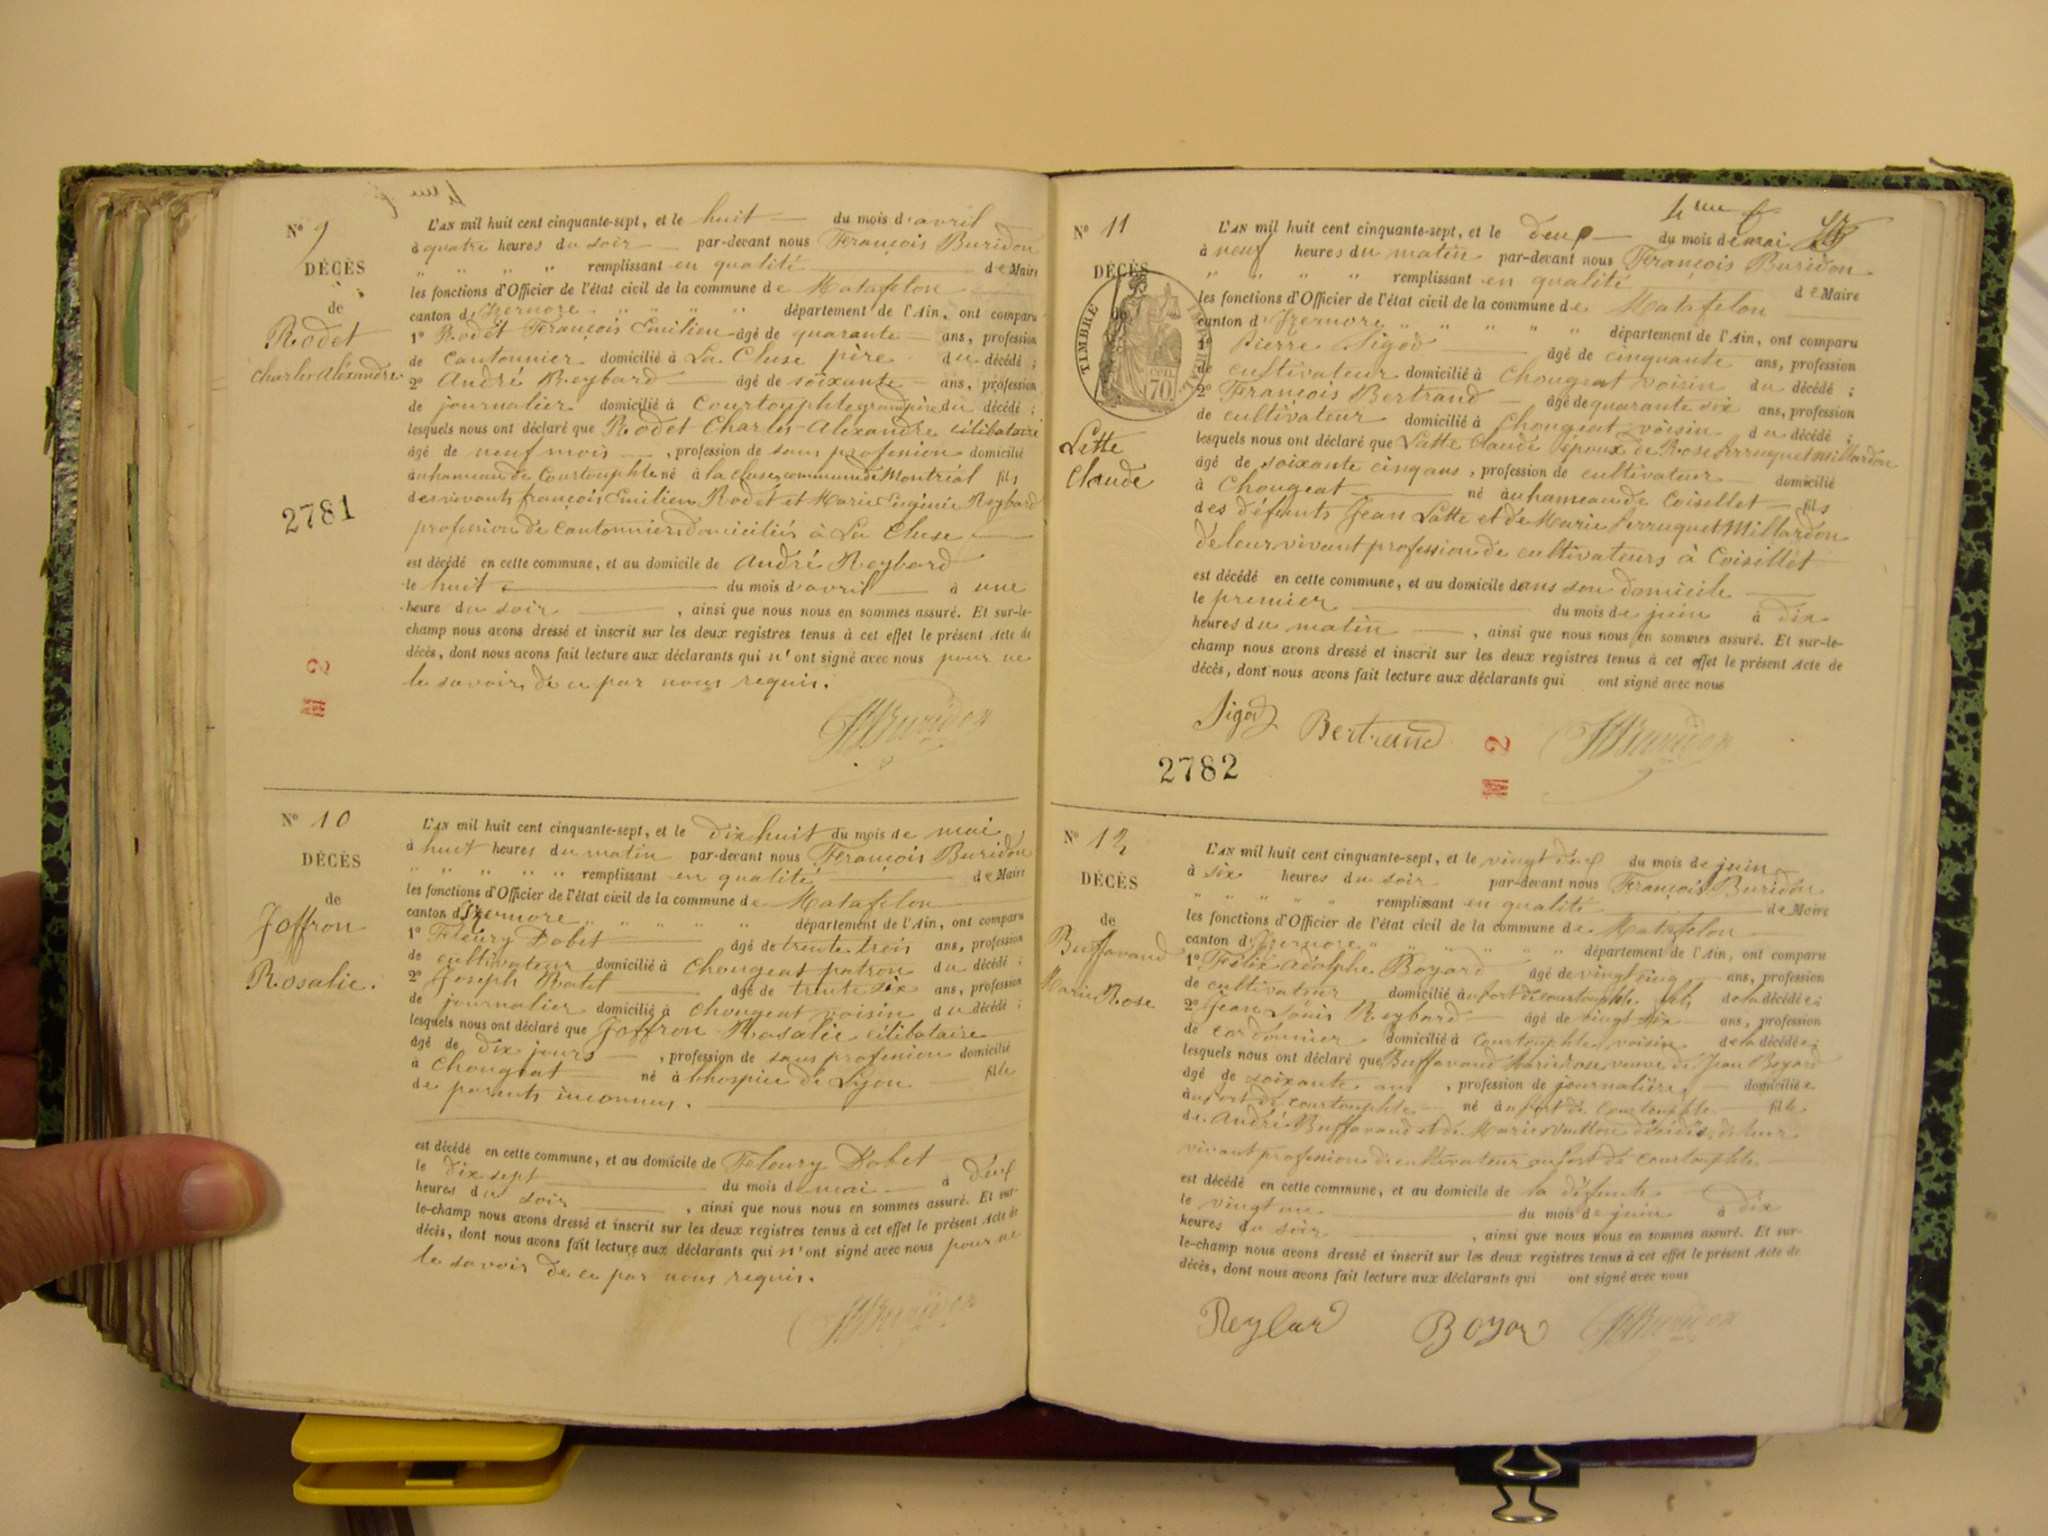 4me f
Nº 9
DÉCÈS
de
Rodet
Charles Alexandre
2781
2
L'AN mil huit cent cinquante-sept, et le huit du mois d'avril
à quatre heures du soir par-devant nous François Buridon
" " " " remplissant en qualité de Maire
les fonctions d'Officier de l'état civil de la commune de Matafelon
canton d'Izernore " " " " département de l'Ain, ont comparu
1º Rodet François Emilien âgé de quarante ans, profession
de cantonnier domicilié à La Cluse père du décédé ;
2º André Reybard âgé de soixante ans, profession
de journalier domicilié à Courtouphle grand père du décédé ;
lesquels nous ont déclaré que Rodet Charles-Alexandre célibataire
âgé de neuf mois , profession de sans profession domicilié
au hameau de Courtouphle né à la cluse, commune de Montréal fils
des vivants françois Emilien Rodet et Marie Eugénie Reybard
profession de cantonniers domiciliés à La Cluse
est décédé en cette commune, et au domicile de André Reybard
le huit du mois d'avril à une
heure du soir , ainsi que nous nous en sommes assuré. Et sur-le-
champ nous avons dressé et inscrit sur les deux registres tenus à cet effet le présent Acte de
décès, dont nous avons fait lecture aux déclarants qui n'ont signé avec nous pour ne
le savoir, de ce par nous requis.
Buridon
Nº 10
DÉCÈS
de
Joffron
Rosalie.
L'AN mil huit cent cinquante-sept, et le dix huit du mois de mai
à huit heures du matin par-devant nous François Buridon
" " " " " remplissant en qualité de Maire
les fonctions d'Officier de l'état civil de la commune de Matafelon
canton d'Izernore " " " " département de l'Ain, ont comparu
1º Fleury Dobet âgé de trente trois ans, profession
de cultivateur domicilié à Chougeat patron du décédé ;
2º Joseph Ratet âgé de trente six ans, profession
de journalier domicilié à Chougeat voisin du décédé ;
lesquels nous ont déclaré que Joffron Rosalie célibataire
âgé de dix jours , profession de sans profession domicilié
à Chougeat né à l'hospice de Lyon fille
de parents inconnus.
est décédé en cette commune, et au domicile de Fleury Dobet
le dix sept du mois de mai à deux
heures du soir , ainsi que nous nous en sommes assuré. Et sur-
le-champ nous avons dressé et inscrit sur les deux registres tenus à cet effet le présent Acte de
décès, dont nous avons fait lecture aux déclarants qui n'ont signé avec nous pour ne
le savoir de ce par nous requis.
Buridon
4me f
Nº 11
DÉCÈS
de
TIMBRE IMPÉRIAL
70
Lette
Claude
L'AN mil huit cent cinquante-sept, et le deux du mois de mai
à neuf heures du matin par-devant nous François Buridon
" " " " remplissant en qualité de Maire
les fonctions d'Officier de l'état civil de la commune de Matafelon
canton d'Izernore " " " " " département de l'Ain, ont comparu
1º Pierre Sigod âgé de cinquante ans, profession
de cultivateur domicilié à Chougeat voisin du décédé ;
2º François Bertrand âgé de quarante six ans, profession
de cultivateur domicilié à Chougeat voisin du décédé ;
lesquels nous ont déclaré que Latte Claude époux de Rose Perruquet Millardon
âgé de soixante cinq ans, profession de cultivateur domicilié
à Chougeat né au hameau de Coisellet fils
des défunts Jean Latte et de Marie Perruquet Millardon
de leur vivant profession de cultivateurs à Coisellet
est décédé en cette commune, et au domicile dans son domicile
le premier du mois de juin à dix
heures du matin , ainsi que nous nous en sommes assuré. Et sur-le-
champ nous avons dressé et inscrit sur les deux registres tenus à cet effet le présent Acte de
décès, dont nous avons fait lecture aux déclarants qui ont signé avec nous
Sigod Bertrand Buridon
2782
2
Nº 12
DÉCÈS
de
Buffavand
Marie Rose
L'AN mil huit cent cinquante-sept, et le vingt deux du mois de juin
à six heures du soir par-devant nous François Buridon
" " " " " remplissant en qualité de Maire
les fonctions d'Officier de l'état civil de la commune de Matafelon
canton d'Izernore " " " " " département de l'Ain, ont comparu
1º Félix Adolphe Boyard âgé de vingt cinq ans, profession
de cultivateur domicilié au fort de courtouphle fils de la décédée ;
2º Jean Louis Reybard âgé de vingt six ans, profession
de cordonnier domicilié à Courtouphle voisin de la décédée ;
lesquels nous ont déclaré que Buffavand Marie Rose veuve de Jean Boyard
âgé de soixante ans , profession de journalière domiciliée
au fort de courtouphle né au fort de Courtouphle fille
de André Buffavand et de Marie décédés, de leur
vivant profession de cultivateur au fort de courtouphle
est décédé en cette commune, et au domicile de la défunte
le vingt un du mois de juin à dix
heures du soir , ainsi que nous nous en sommes assuré. Et sur-
le-champ nous avons dressé et inscrit sur les deux registres tenus à cet effet le présent Acte de
décès, dont nous avons fait lecture aux déclarants qui ont signé avec nous
Reybard Boyard Buridon